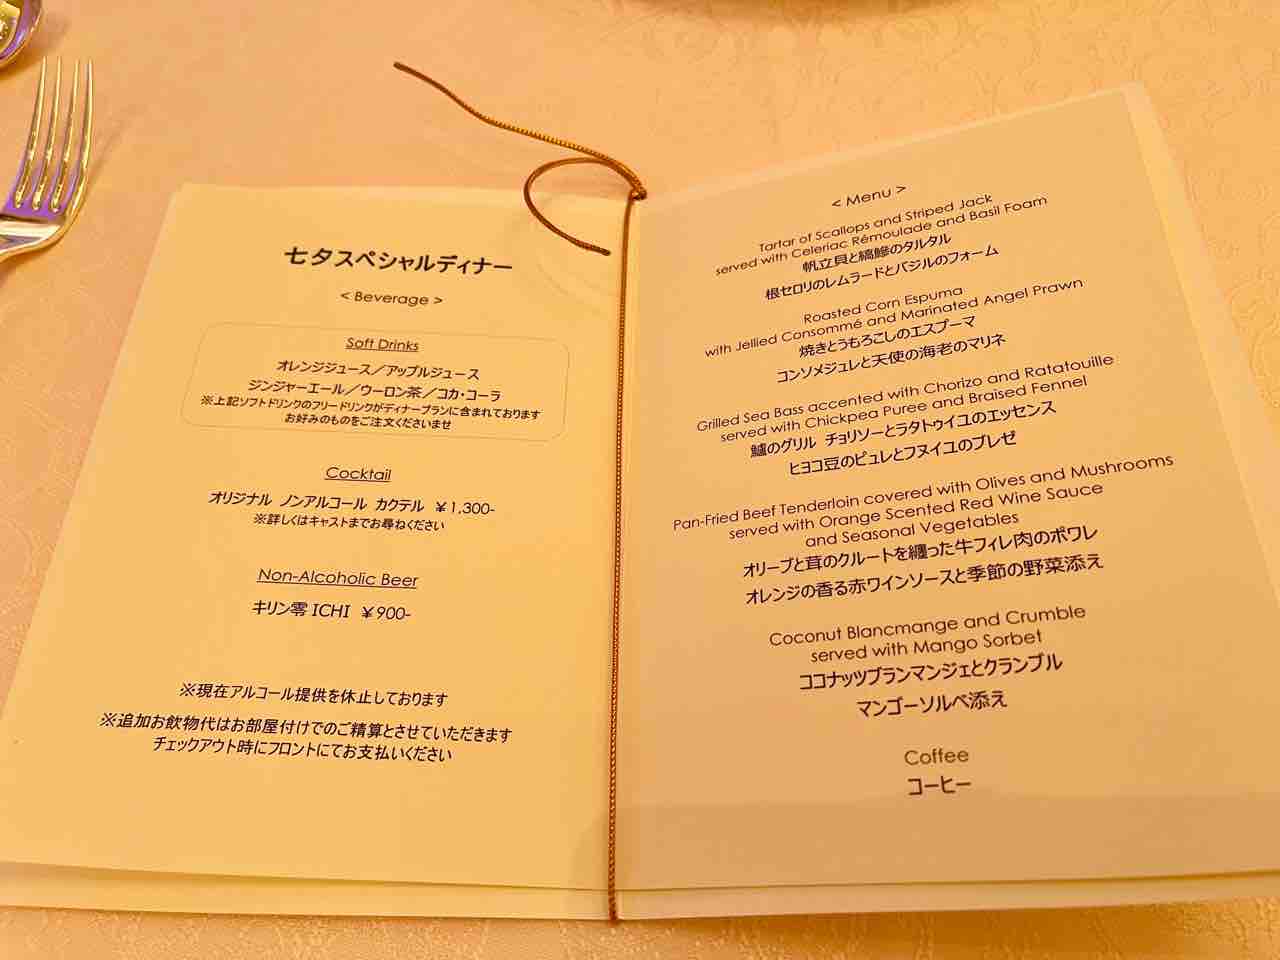 七夕スペシャルディナー
< Beverage >
Soft Drinks
オレンジジュース／アップルジュース
ジンジャーエール／ウーロン茶／コカ・コーラ
※上記ソフトドリンクのフリードリンクがディナープランに含まれております
お好みのものをご注文くださいませ
Cocktail
オリジナル ノンアルコール カクテル ￥1,300-
※詳しくはキャストまでお尋ねください
Non-Alcoholic Beer
キリン零 ICHI ￥900-
※現在アルコール提供を休止しております
※追加お飲物代はお部屋付けでのご精算とさせていただきます
チェックアウト時にフロントにてお支払いください
< Menu >
Tartar of Scallops and Striped Jack
served with Celeriac Rémoulade and Basil Foam
帆立貝と縞鯵のタルタル
根セロリのレムラードとバジルのフォーム
Roasted Corn Espuma
with Jellied Consommé and Marinated Angel Prawn
焼きとうもろこしのエスプーマ
コンソメジュレと天使の海老のマリネ
Grilled Sea Bass accented with Chorizo and Ratatouille
served with Chickpea Puree and Braised Fennel
鱸のグリル チョリソーとラタトゥイユのエッセンス
ヒヨコ豆のピュレとフヌイユのブレゼ
Pan-Fried Beef Tenderloin covered with Olives and Mushrooms
served with Orange Scented Red Wine Sauce
and Seasonal Vegetables
オリーブと茸のクルートを纏った牛フィレ肉のポワレ
オレンジの香る赤ワインソースと季節の野菜添え
Coconut Blancmange and Crumble
served with Mango Sorbet
ココナッツブランマンジェとクランブル
マンゴーソルベ添え
Coffee
コーヒー